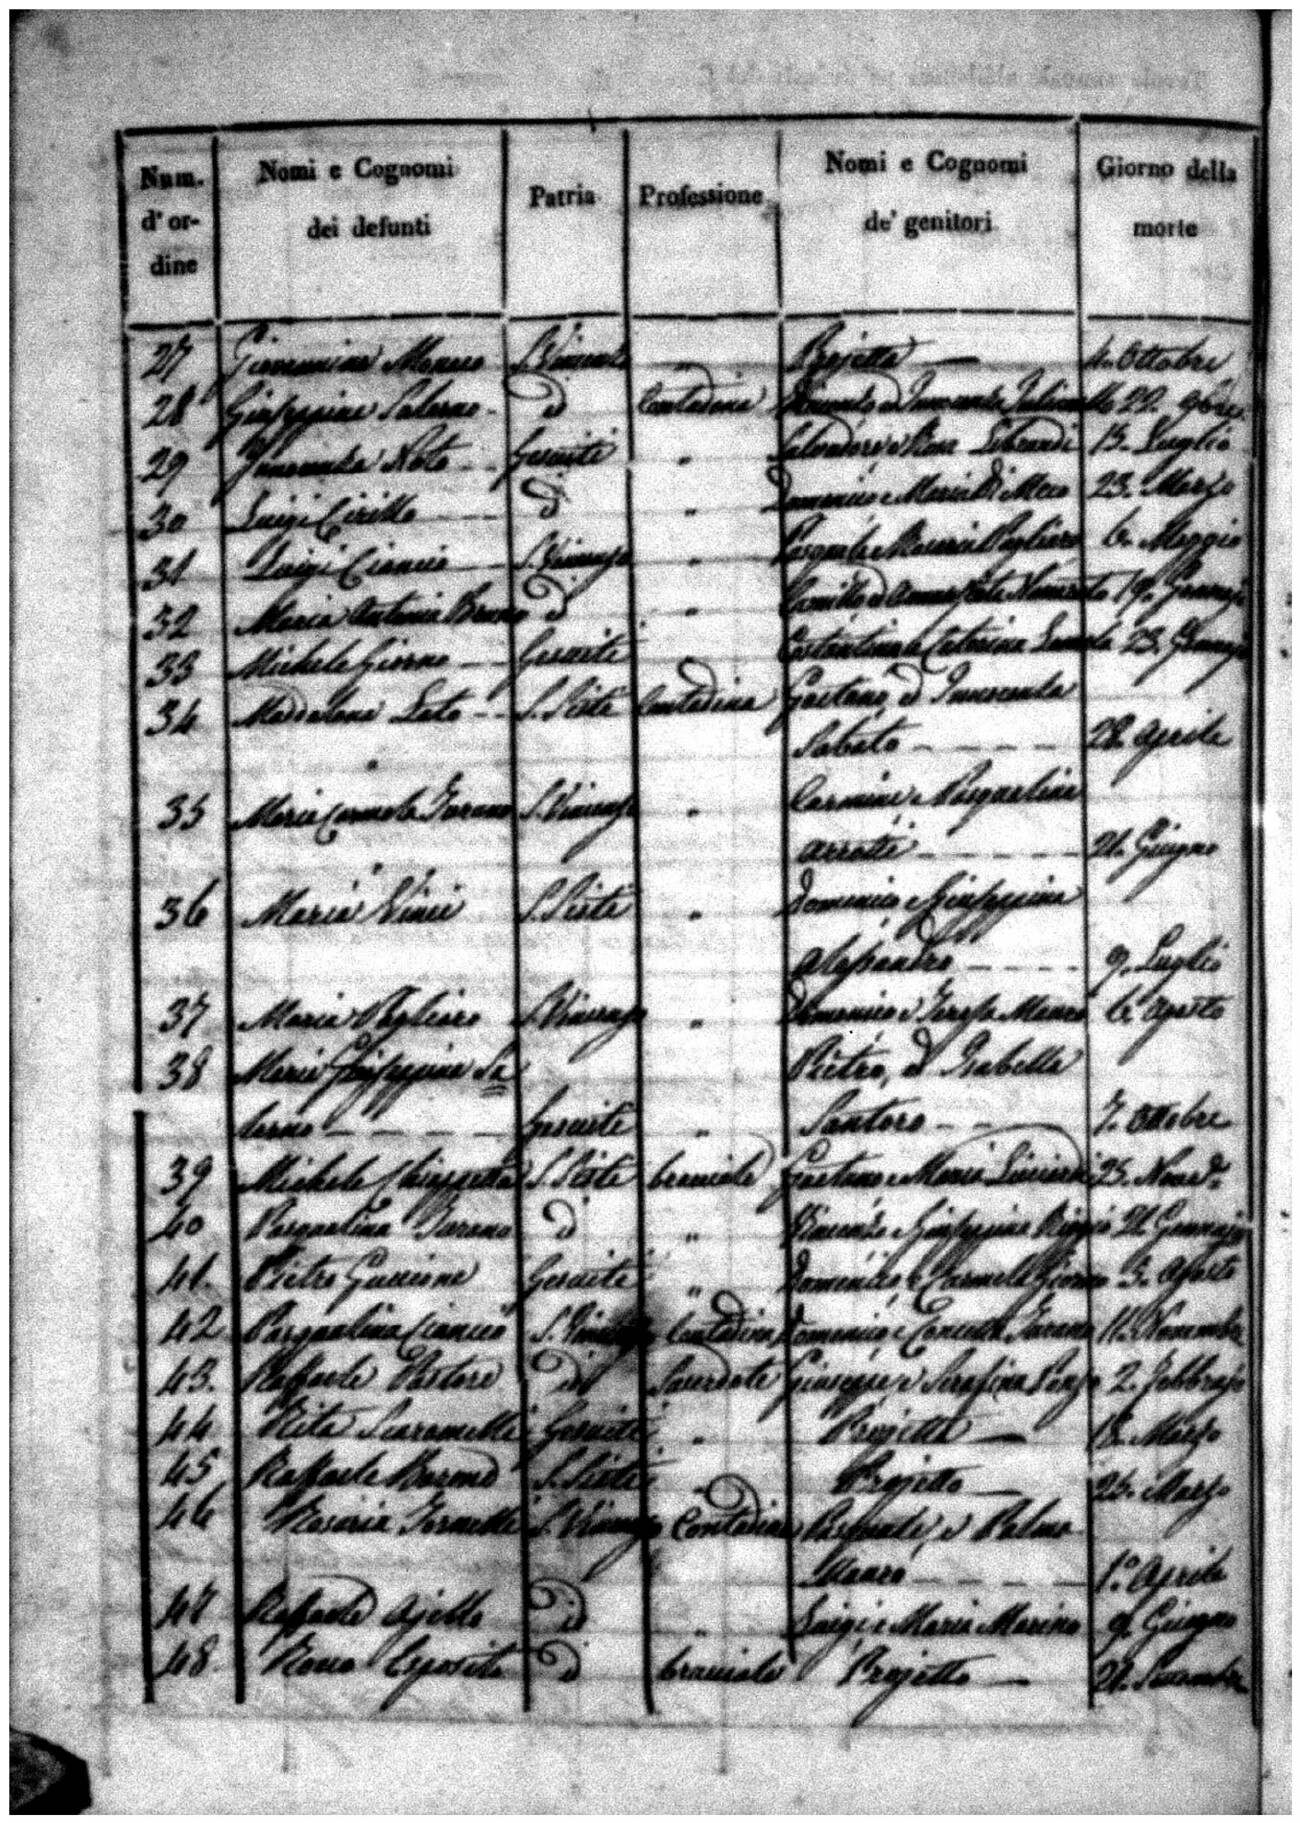 Num. d'ordine Nomi e Cognomi dei defunti Patria Professione Nomi e Cognomi de' genitori Giorno della morte
27 Giovannina Monaco S. Vincenzo " Projetta 4. Ottobre
28 Giuseppina Salerno d Contadina Vincenzo ed Innocenza 22. 9bre
29 Innocenza Noto Gesuiti " Salvadore e Rosa Librandi 13. Luglio
30 Luigi Cirillo d " Domenico e Maria Di Meco 23. Marzo
31 Luigi Ciancio S. Vincenzo " Pasquale e Maria Pagliaro 6. Maggio
32 Maria Antonia Bruno d " Camillo ed 19. Gennajo
33 Michele Giorno Gesuiti " Costantino e Caterina 23. Gennajo
34 Maddalena Lato S. Sisti Contadina Gaetano, ed Innocenza
Sabato 28. Aprile
35 Maria Carmela Turano S. Vincenzo " Carmine e Pasqualina
Arrotti 21. Giugno
36 Maria Vinci S. Sisti " Domenico e Giuseppina
Alessandro 9. Luglio
37 Maria Pagliaro S. Vincenzo " Domenico e Teresa Mauro 6. Agosto
38 Maria Giuseppina Sa
lerno Gesuiti " Pietro, ed Isabella
Santoro 7. Ottobre
39 Michele Chiappetta S. Sisti bracciale Gaetano e Maria 25. Nove
40 Pasqualina Turano d " Vincenzo e Giuseppina 21. Gennajo
41. Pietro Guccione Gesuiti " Domenico e Carmela Giorno 3. Agosto
42 Pasqualina Ciancio S. Vincenzo Contadina Domenico e Concetta Turano 11. Novembre
43. Raffaele Pastore d Sacerdote Giuseppe e Serafina 2. Febbrajo
44 Rita Scaramelli Gesuiti " Projetta 18. Marzo
45 Raffaele S. Sisti " Projetto 26. Marzo
46 Rosaria S. Vincenzo Contadina Pasquale, e Palma
Mauro 1.° Aprile
47 Raffaele Ajello d " Luigi e Maria Marino 9. Giugno
48. Rocco Esposito d bracciale Projetto 21.